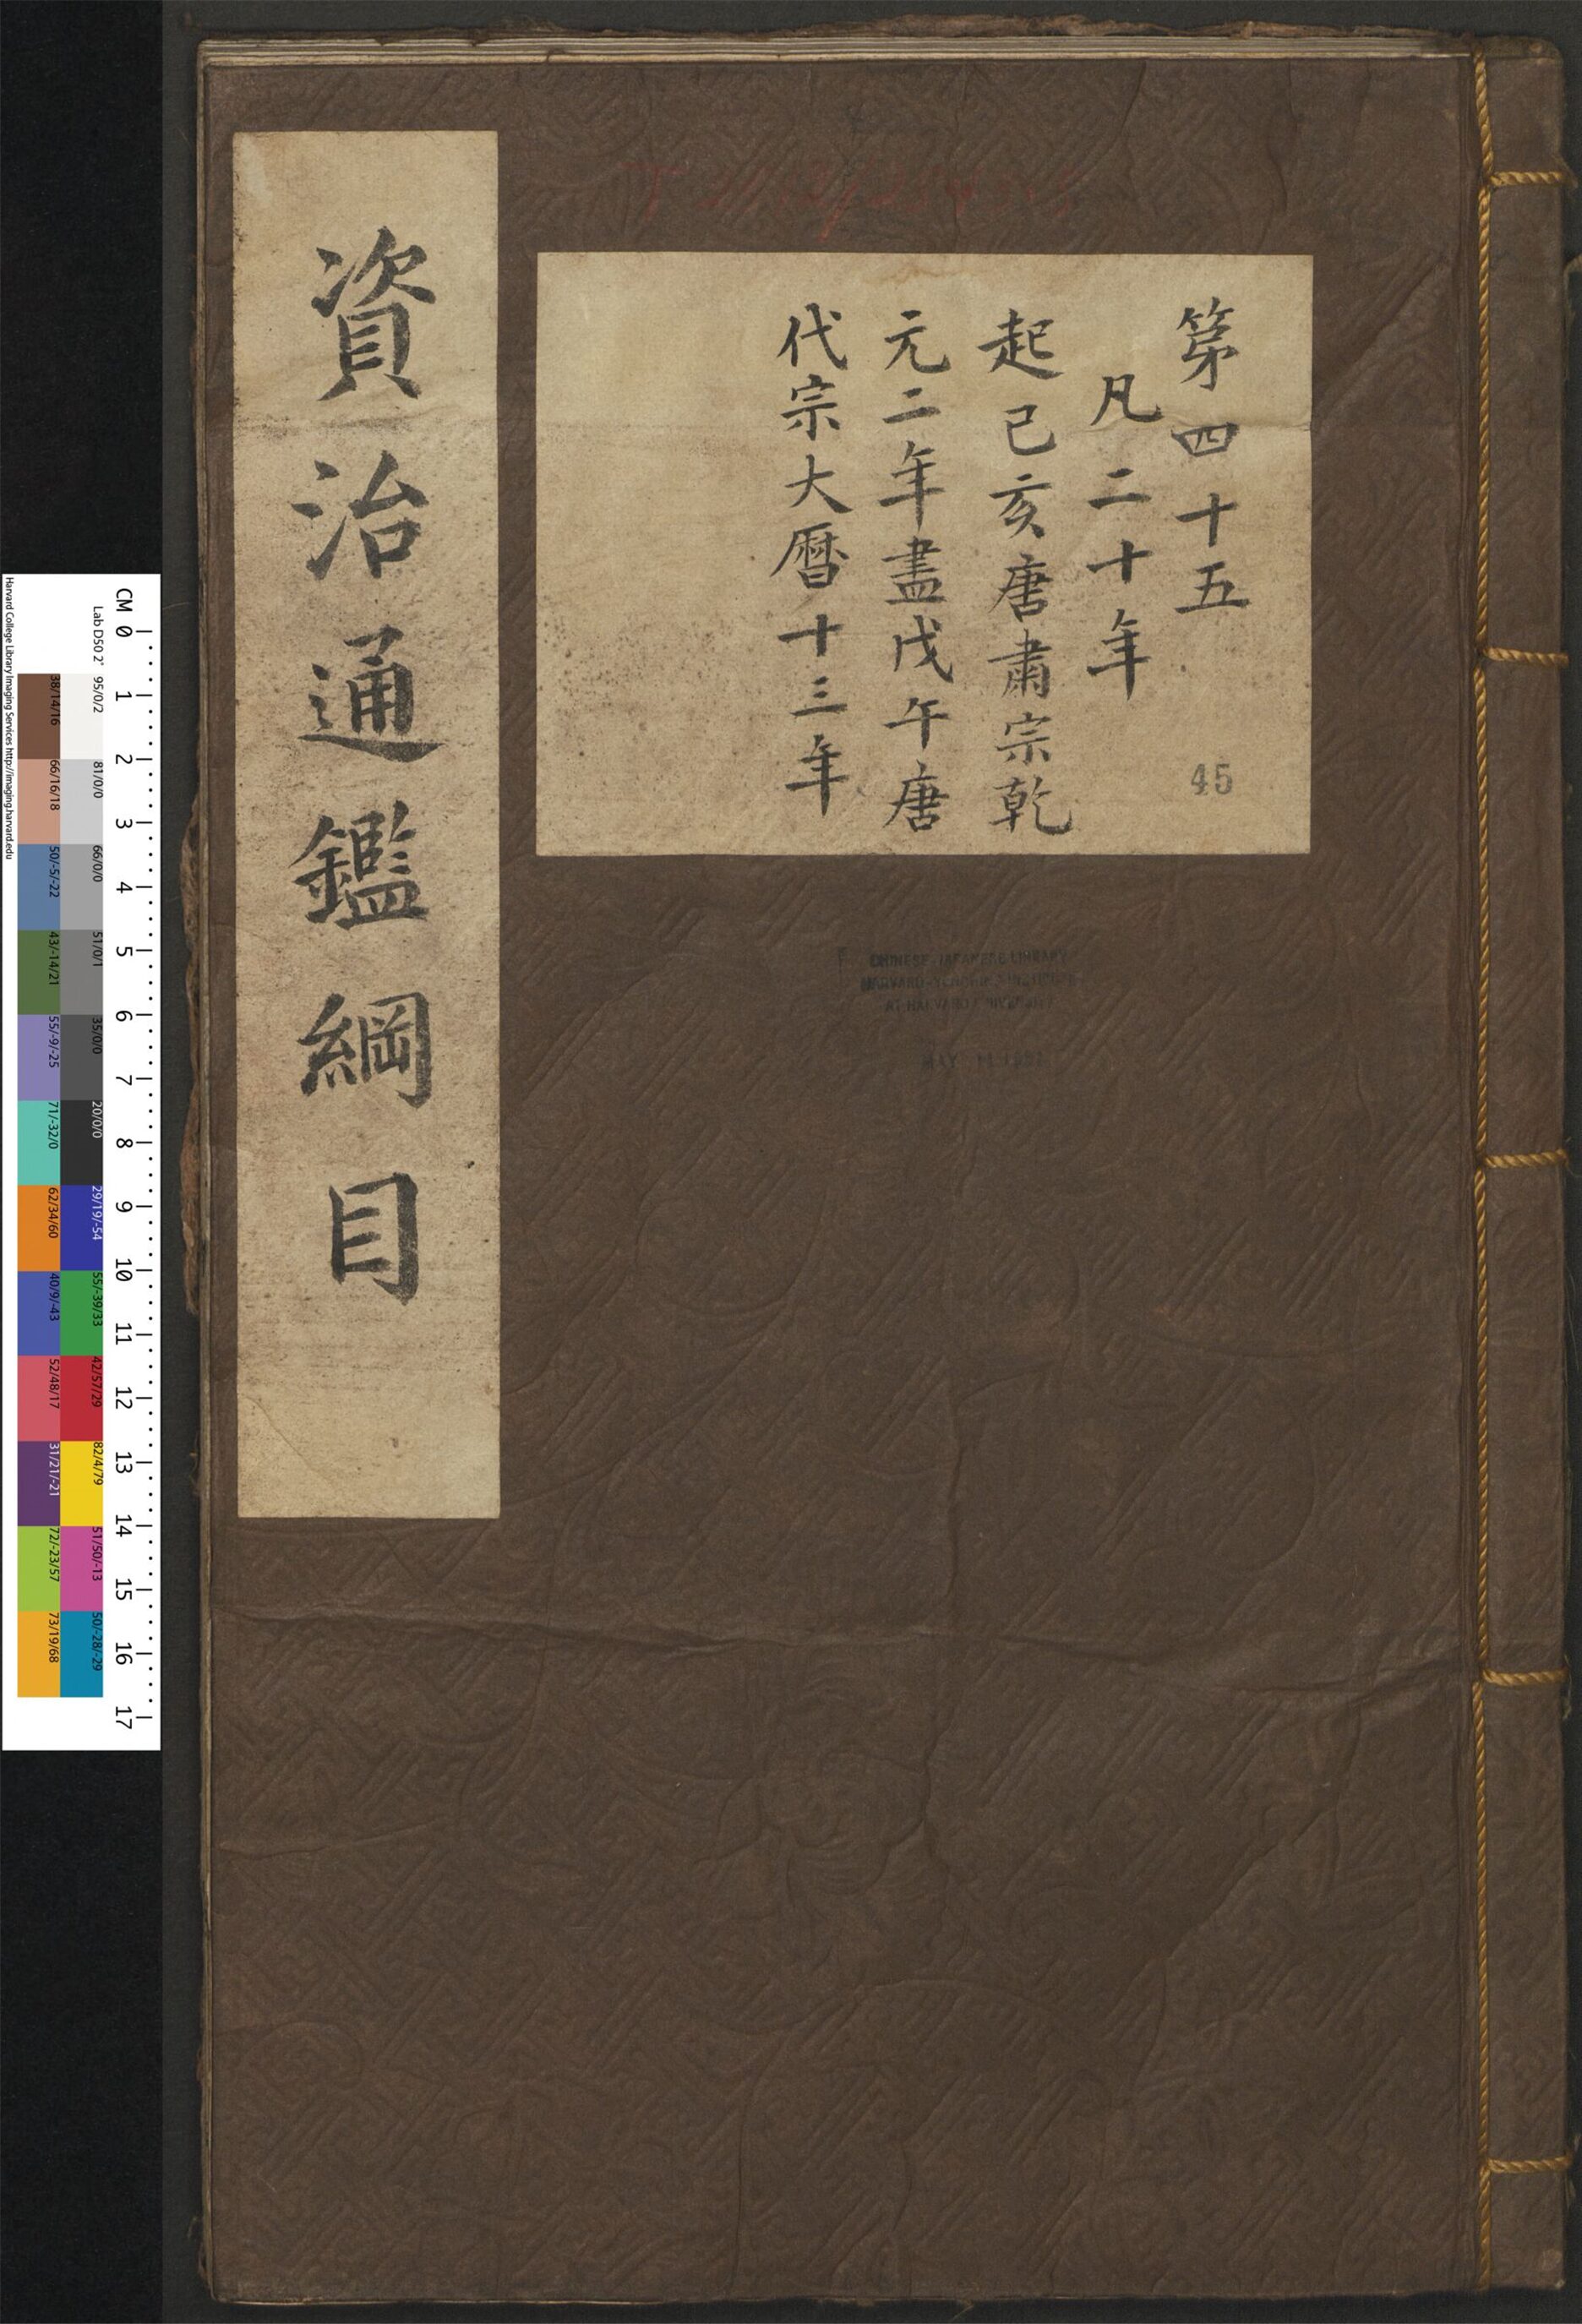 第四十五
45
凡二十年
起己亥唐肅宗乾
元二年盡戊午唐
代宗大曆十三年
資治通鑑綱目
CHINESE-JAPANESE LIBRARY
HARVARD-YENCHING INSTITUTE
AT HARVARD UNIVERSITY
CM 0 1 2 3 4 5 6 7 8 9 10 11 12 13 14 15 16 17
Lab D50 2° 95/0/2 81/0/0 66/0/0 51/0/1 35/0/0 20/0/0 29/19/-54 55/-39/33 42/57/29 82/4/79 51/50/-13 50/-28/-29
38/14/16 66/16/18 50/-5/-22 43/-14/21 55/-9/-25 71/-32/0 62/34/60 40/9/-43 52/48/17 31/21/-21 72/-23/57 73/19/68
Harvard College Library Imaging Services http://imaging.harvard.edu